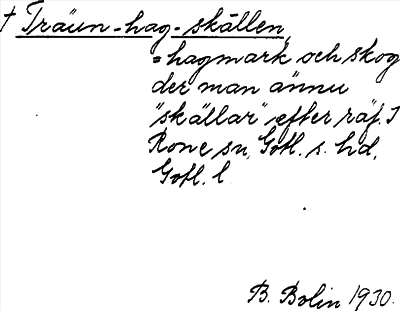 † Träun-hag-skällen,
= hagmark och skog
der man ännu
"skällar" efter räf. I
Rone sn, Gotl. s. hd,
Gotl. l
B. Bolin 1930.